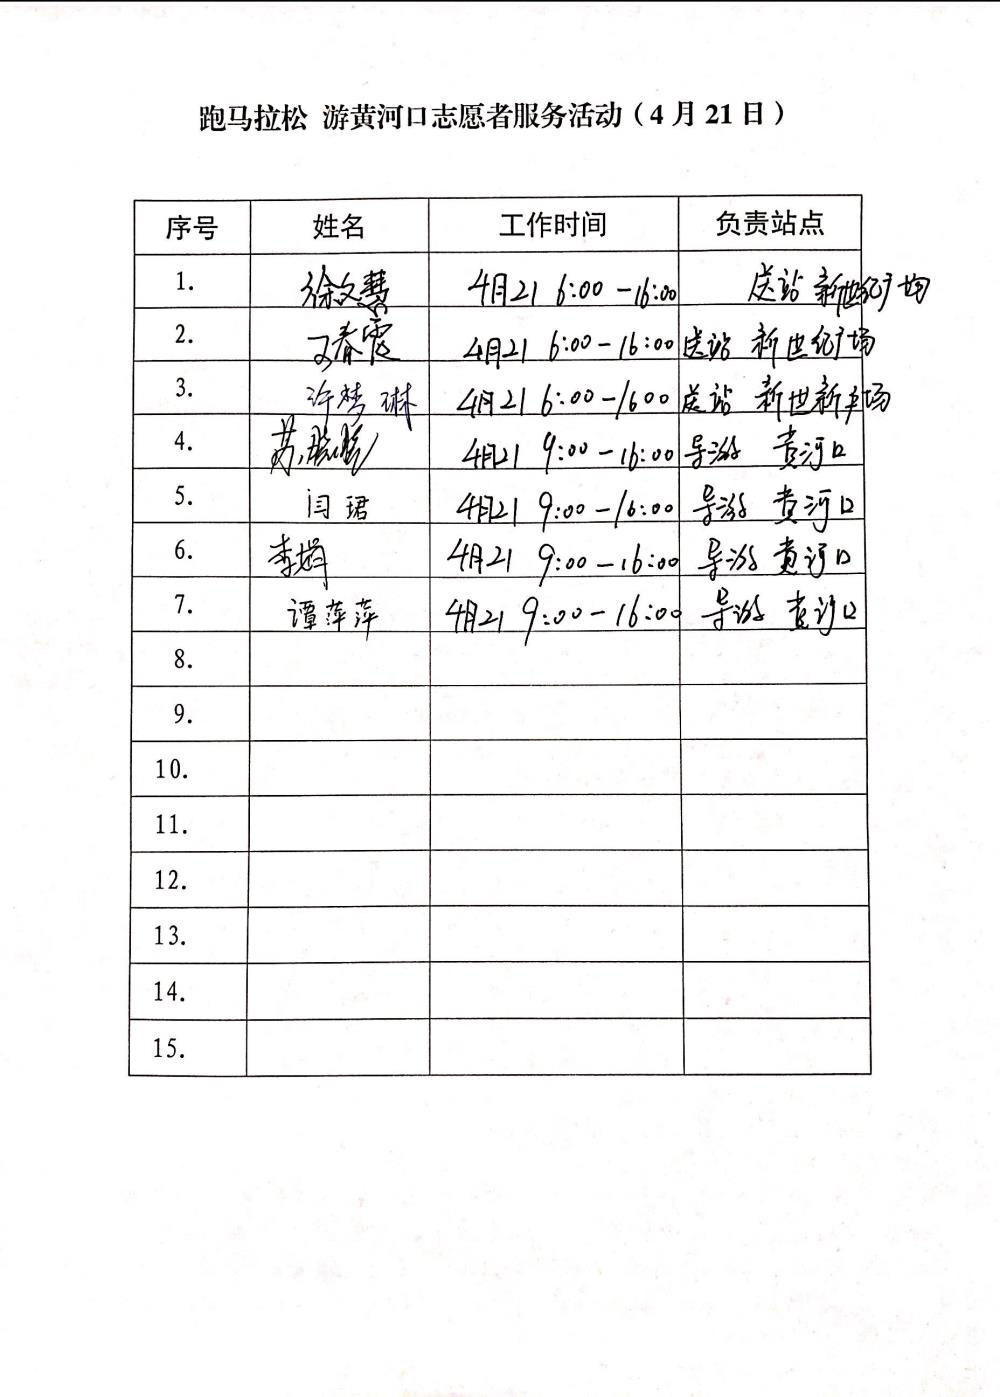 跑马拉松 游黄河口志愿者服务活动（4 月 21 日）
序号 姓名 工作时间 负责站点
1. 徐文慧 4月21 6:00-16:00 送站 新世纪广场
2. 春霞 4月21 6:00-16:00 送站 新世纪广场
3. 许梦琳 4月21 6:00-1600 送站 新世新广场
4. 苏晓 4月21 9:00-16:00 导游 黄河口
5. 闫珺 4月21 9:00-16:00 导游 黄河口
6. 李娟 4月21 9:00-16:00 导游 黄河口
7. 谭萍萍 4月21 9:00-16:00 导游 黄河口
8.
9.
10.
11.
12.
13.
14.
15.